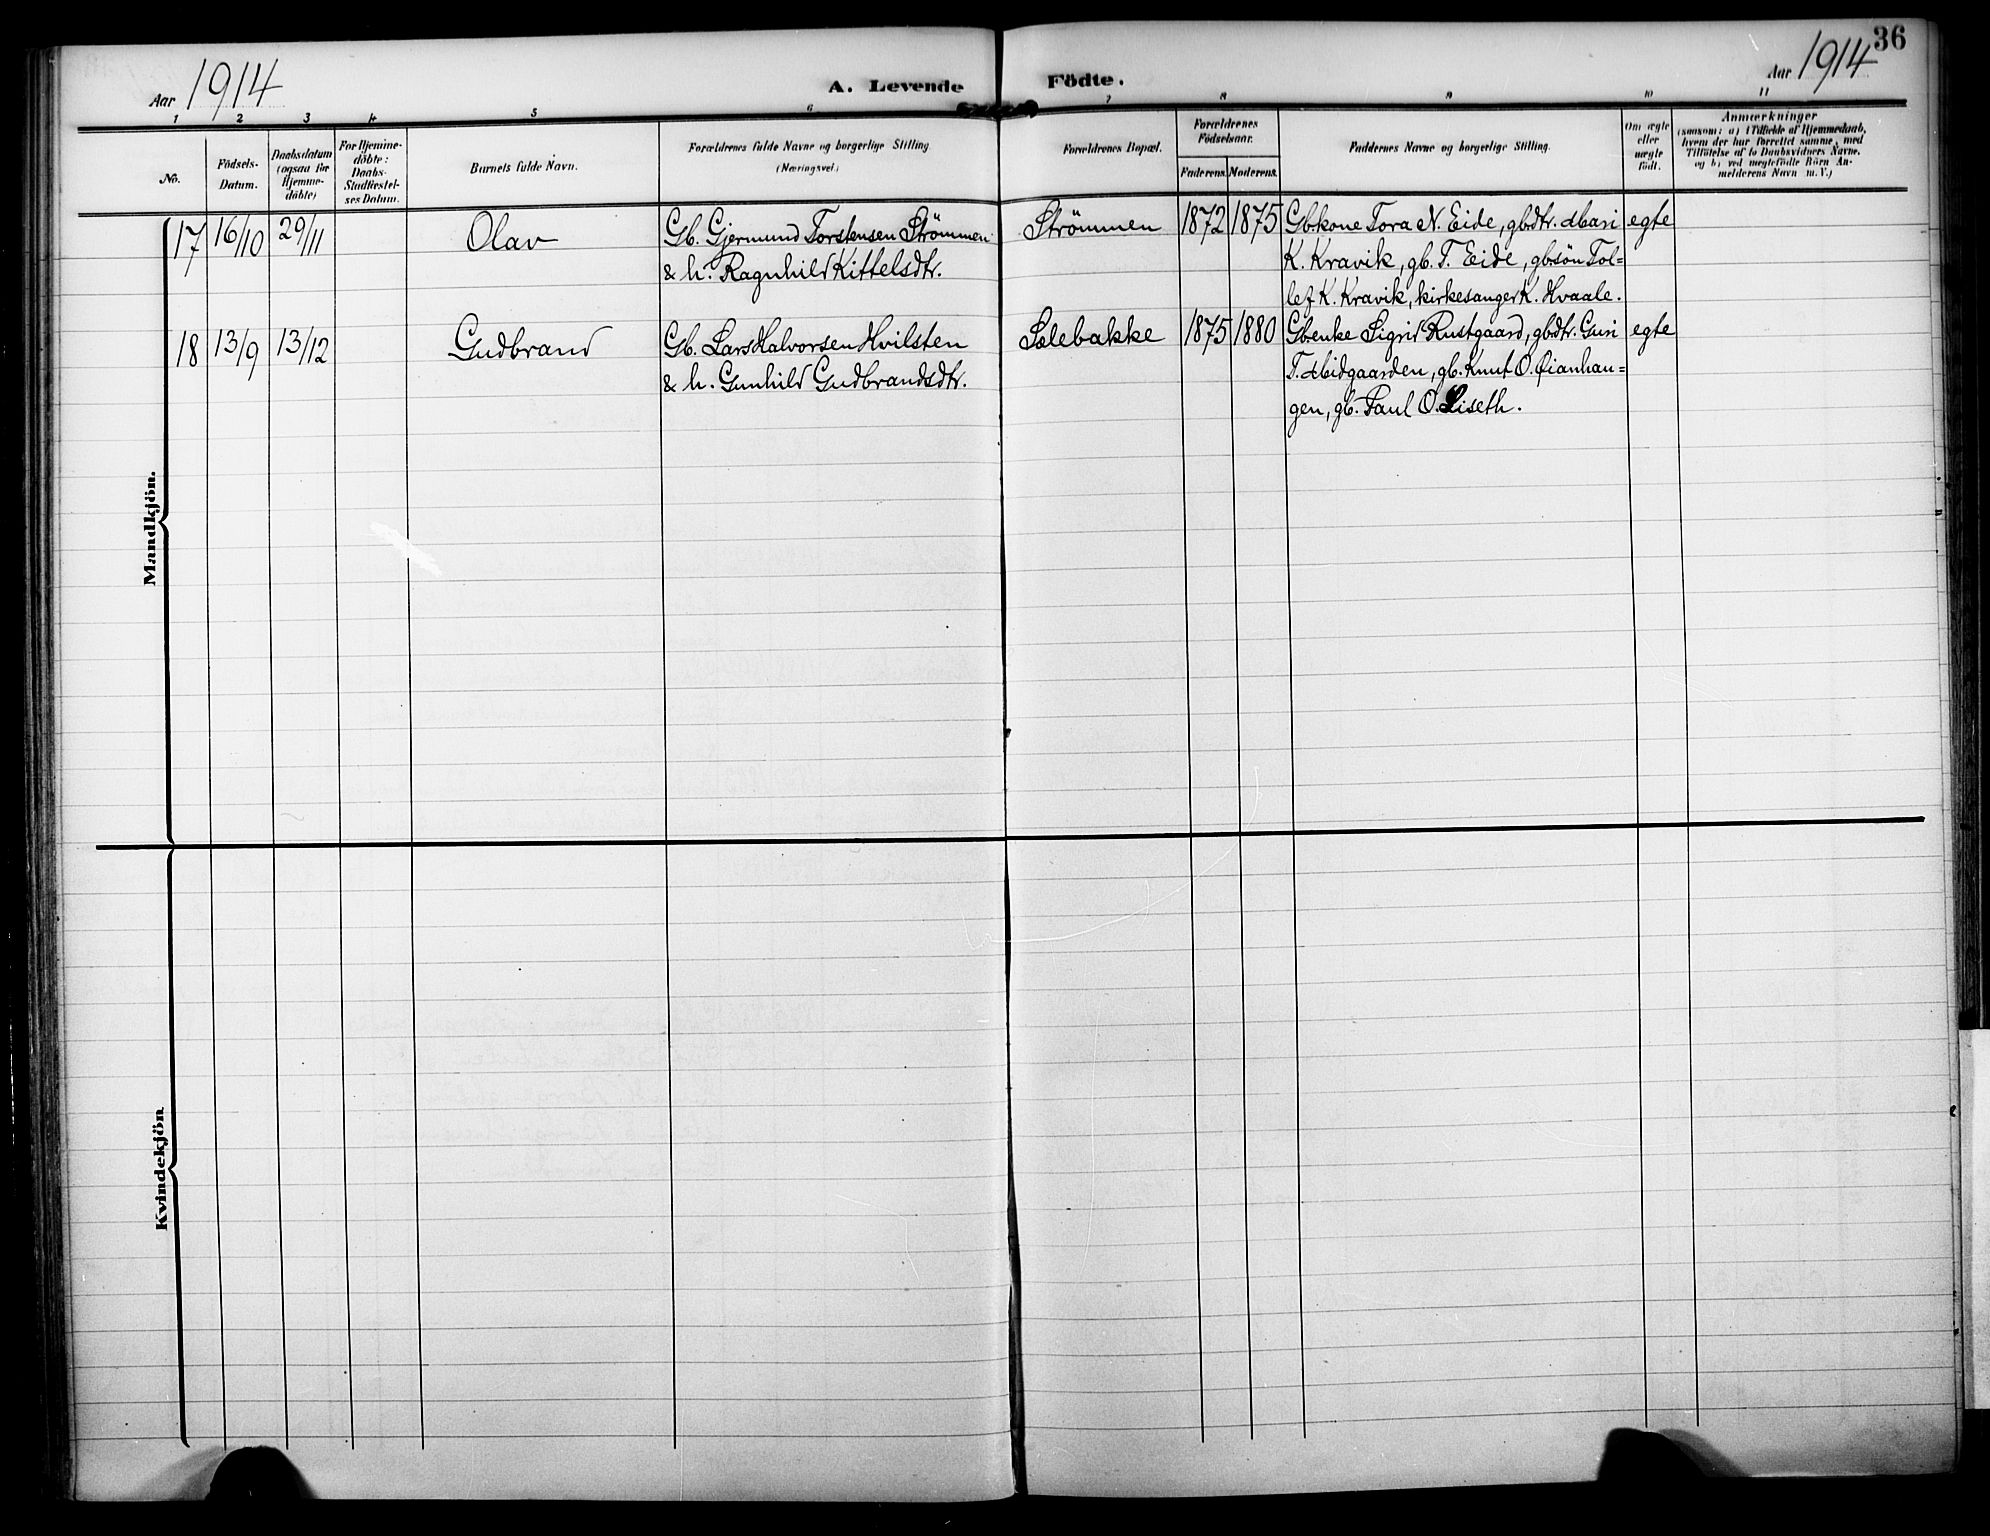 36
Aar 1914
A. Levende Födte.
Aar 1914
1 2 3 4 5 6 7 8 9 10 11
No.
Födsels-
Datum.
Daabsdatum
(ogsaa for
Hjemme-
döbte)
For Hjemme-
döbte:
Daabs-
Stadfæstel-
ses Datum.
Barnets fulde Navn.
Forældrenes fulde Navne og borgerlige Stilling
(Næringsvei.)
Forældrenes Bopæl.
Forældrenes
Födselsaar.
Faderens. Moderens.
Faddernes Navne og borgerlige Stilling.
Om ægte
eller
uægte
födt.
Anmærkninger
(saasom: a) i Tilfælde af Hjemmedaab,
hvem der har forrettet samme, med
Tilföielse af to Daabsvidners Navne.
og b) ved uægtefödte Börn An-
melderens Navn m. V.)
Mandkjön.
17 16/10 29/11 Olav Gb. Gjermund Torstensen Strömmen Strømmen 1872 1875 Gbkone Tora N. Eide, gbdtr. Mari egte
& h. Ragnhild Kittelsdtr. K. Kravik, gb. T. Eide, gbsön Tol=
lef K. Kravik, kirkesanger K. Hvaale.
18 13/9 13/12 Gudbrand Gb. Lars Halvorsen Hvilsten Solebakke 1875 1880 Gbenke Sigrid Rustgaard, gbdtr. Guri egte
& h. Gunhild Gudbrandsdtr. T. Midgaarden, gb. Knut O. Øianhau=
gen, gb. Paul O. Liseth.
Kvindekjön